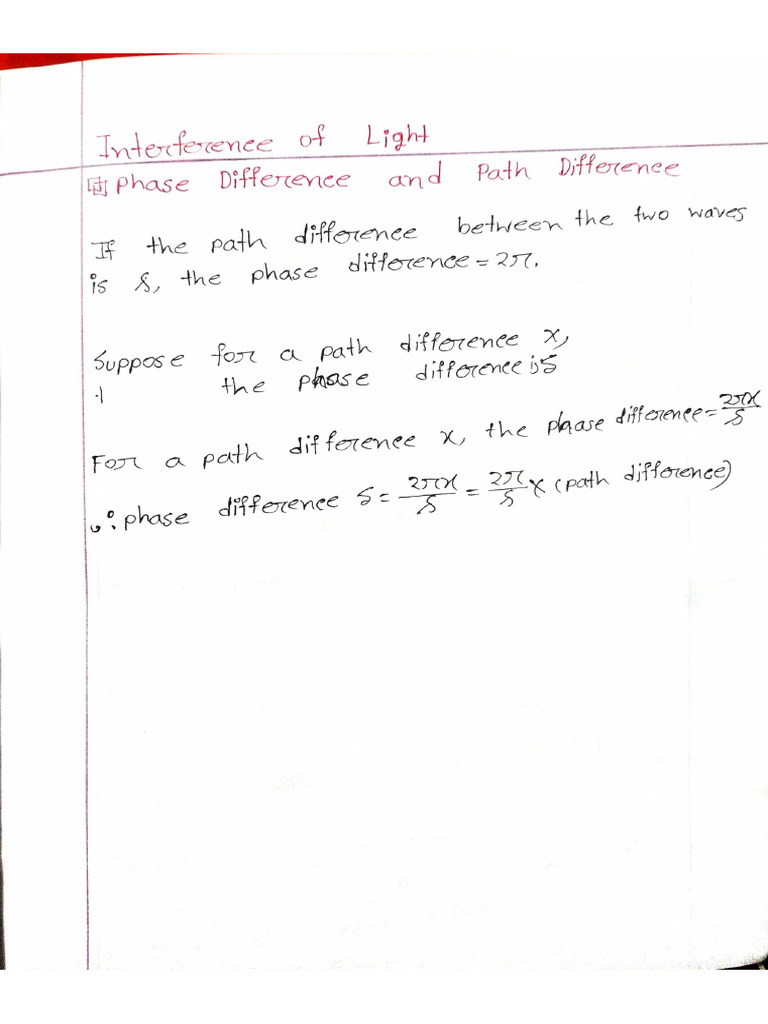 Interference of Light
Phase Difference and Path Difference
If the path difference between the two waves
is λ, the phase difference = 2π.
Suppose for a path difference x,
the phase difference is δ
For a path difference x, the phase difference = 2πx/λ
∴ phase difference δ = 2πx/λ = 2π/λ × (path difference)